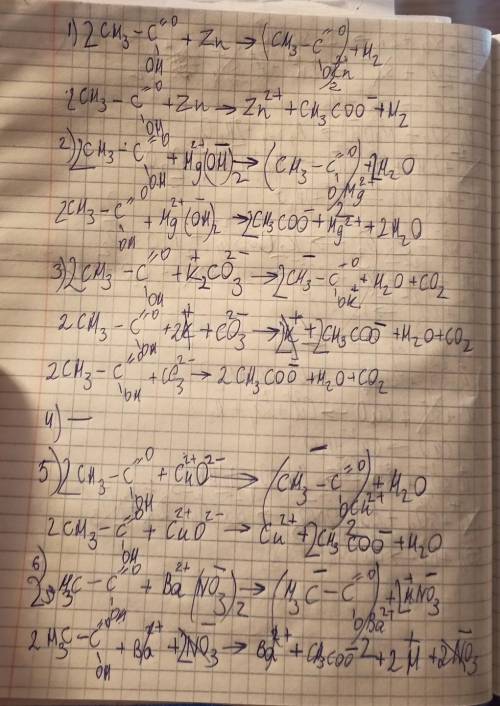 1) 2CH₃–C(=O)(OH) + Zn → (CH₃–C(=O)(O))₂Zn²⁺ + H₂
2CH₃–C(=O)(OH) + Zn → Zn²⁺ + CH₃COO⁻ + H₂
2) 2CH₃–C(=O)(OH) + Hg²⁺(OH⁻)₂ → (CH₃–C(=O)(O))₂Hg²⁺ + 2H₂O
2CH₃–C(=O)(OH) + Hg²⁺(OH⁻)₂ → 2CH₃COO⁻ + Hg²⁺ + 2H₂O
3) 2CH₃–C(=O)(OH) + K⁺₂CO₃²⁻ → 2CH₃–C(=O)(OK⁺) + H₂O + CO₂
2CH₃–C(=O)(OH) + 2K⁺ + CO₃²⁻ → 2K⁺ + 2CH₃COO⁻ + H₂O + CO₂
2CH₃–C(=O)(OH) + CO₃²⁻ → 2CH₃COO⁻ + H₂O + CO₂
4) —
5) 2CH₃–C(=O)(OH) + Cu²⁺O²⁻ → (CH₃–C(=O)(O))₂Cu²⁺ + H₂O
2CH₃–C(=O)(OH) + Cu²⁺O²⁻ → Cu²⁺ + 2CH₃COO⁻ + H₂O
6) 2H₃C–C(=O)(OH) + Ba²⁺(NO₃⁻)₂ → (H₃C–C(=O)(O))₂Ba²⁺ + 2H⁺NO₃⁻
2H₃C–C(=O)(OH) + Ba²⁺ + 2NO₃⁻ → Ba²⁺ + CH₃COO⁻ + 2H⁺ + 2NO₃⁻